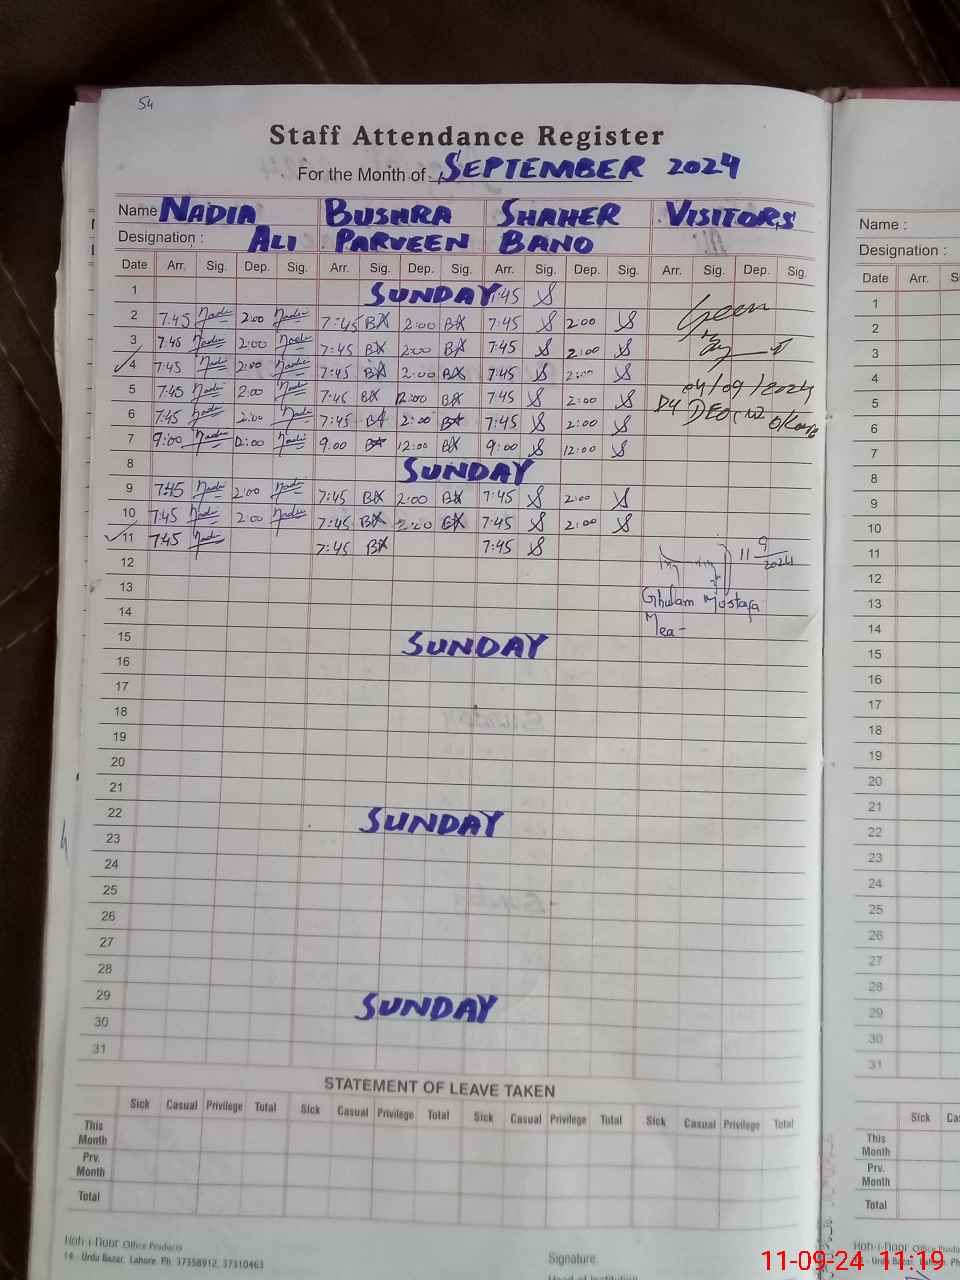 54
Staff Attendance Register
For the Month of SEPTEMBER 2024
Name NADIA BUSHRA SHAHER VISITORS Name :
Designation : ALI PARVEEN BANO Designation :
Date Arr. Sig. Dep. Sig. Arr. Sig. Dep. Sig. Arr. Sig. Dep. Sig. Arr. Sig. Dep. Sig. Date Arr.
1 SUNDAY 7:45 1
2 7:45 Nadia 2:00 Nadia 7:45 2:00 7:45 2:00 Seen 2
3 7:45 Nadia 2:00 Nadia 7:45 2:00 7:45 2:00 3
4 7:45 Nadia 2:00 Nadia 7:45 2:00 7:45 2:00 04/09/2024 4
5 7:45 Nadia 2:00 Nadia 7:45 12:00 7:45 2:00 Dy DEO 5
6 7:45 Nadia 2:00 Nadia 7:45 2:00 7:45 2:00 6
7 9:00 Nadia 12:00 Nadia 9:00 12:00 9:00 12:00 7
8 SUNDAY 8
9 7:45 Nadia 2:00 Nadia 7:45 2:00 7:45 2:00 9
10 7:45 Nadia 2:00 Nadia 7:45 2:00 7:45 2:00 10
11 7:45 Nadia 7:45 7:45 11 9 2024 11
12 12
13 Ghulam Mostafa 13
14 Mea- 14
15 SUNDAY 15
16 16
17 17
18 18
19 19
20 20
21 21
22 SUNDAY 22
23 23
24 24
25 25
26 26
27 27
28 28
29 SUNDAY 29
30 30
31 31
STATEMENT OF LEAVE TAKEN
Sick Casual Privilege Total Sick Casual Privilege Total Sick Casual Privilege Total Sick Casual Privilege Total Sick
This Month This Month
Prv. Month Prv. Month
Total Total
Hoh-i-Noor Office Products Hoh-i-Noor Office Products
14 - Urdu Bazar, Lahore. Ph 37358912, 37310463 Signature
11-09-24 11:19